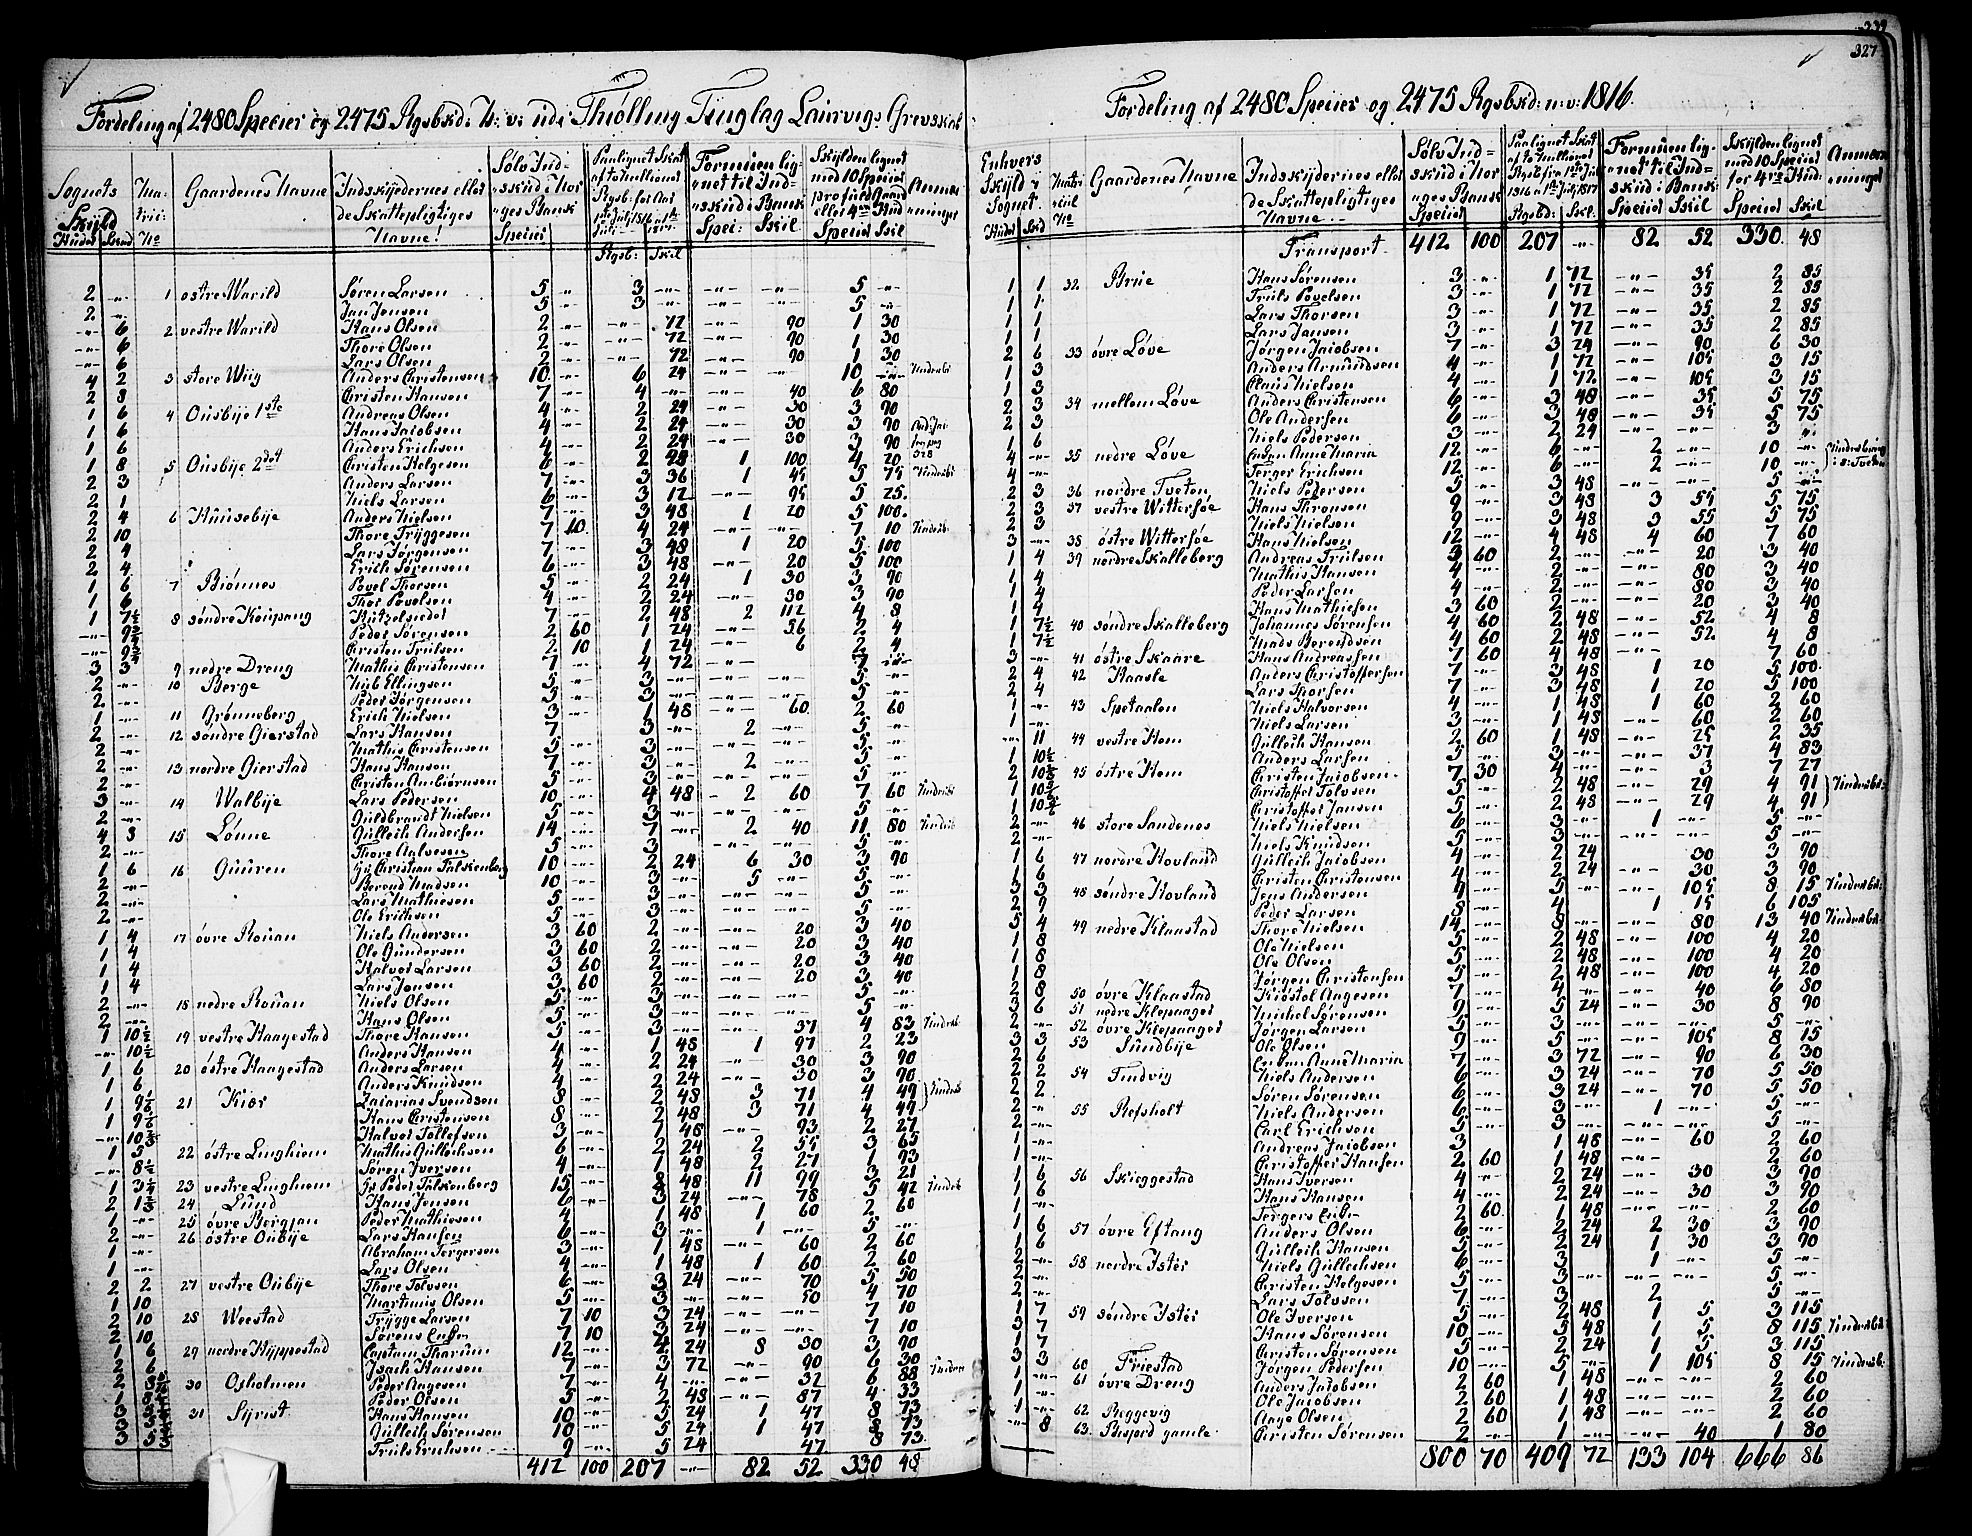 339
327
Fordeling af 2480 Specier og 2475 Rgsbkd: N: v: udi Thiølling Tinglag Laurvigs Grevskab
Sognets Skyld
Huder Skind
Matricul No
Gaardenes Navne
Indskydernes eller de Skattepligtiges Navne!
Sølv Indskud i Norges Bank
Specier
Formuen lignet til Indskud i Bank
Speci: Skil.
Specier Skil
Rgsb: Skil
2 -"- 1 østre Warild Søren Larsen 5 " 3 -"- -"- -"- 5 -"-
2 -"- Jan Jensen 5 " 3 -"- -"- -"- 5 -"-
-"- 6 2 vestre Warild Hans Olsen 2 -"- -"- 72 -"- 90 1 30
-"- 6 Thore Olsen 2 -"- -"- 72 -"- 90 1 30
-"- 6 Lars Olsen 2 -"- -"- 72 -"- 90 1 30
4 2 3 store Wiig Anders Christensen 10 -"- 6 24 -"- -"- 10 -"-
2 8 Christen Hansen 7 -"- 4 -"- -"- 40 6 80
1 6 4 Ousbije 1ste Andreas Olsen 4 -"- 2 24 -"- 30 3 90
1 6 Hans Jacobsen 4 -"- 2 24 -"- 30 3 90
1 6 Anders Erichsen 4 -"- 2 24 -"- 30 3 90
1 8 5 Ousbije 2det Christen Helgesen 6 -"- 2 28 1 100 4 20
2 3 Anders Larsen 7 -"- 3 36 1 45 5 75
2 1 Niels Larsen 6 -"- 3 12 -"- 95 5 25
2 4 6 Huusebije Anders Nielsen 7 -"- 3 48 1 20 5 100
2 10 Thore Tryggesen 7 10 4 24 -"- -"- 7 10
2 4 Lars Jørgensen 7 -"- 3 48 1 20 5 100
2 4 Erich Sørensen 6 -"- 3 48 -"- 20 5 100
1 6 7 Biønnes Povel Thorsen 5 -"- 2 24 1 30 3 90
1 6 Thor Povelsen 4 -"- 2 24 -"- 30 3 90
1 7½ 8 søndre Kaupang Hutzelsudet 7 -"- 2 48 2 112 4 8
Peder Sørensen 2 60 1 24 -"- 56 2 4
Christen Truulsen 2 10 1 24 -"- 6 2 4
3 3 9 nedre Dreng Mathis Christensen 7 -"- 4 72 -"- -"- 7 -"-
2 -"- 10 Berge Ellingsen 5 -"- 3 -"- -"- -"- 5 -"-
2 -"- Peder Jørgensen 5 -"- 3 -"- -"- -"- 5 -"-
1 -"- 11 Grønneberg Erich Nielsen 3 -"- 1 48 -"- 60 2 60
2 -"- 12 søndre Gierstad Lars Hansen 7 3 -"- 2 -"- 5 -"-
2 -"- Mathis Christensen 5 -"- 3 -"- -"- -"- 5 -"-
2 -"- 13 nordre Gierstad Hans Hanson 7 -"- 3 -"- 2 -"- 5 -"-
2 -"- Christen Ambiørnsen 5 -"- 3 -"- -"- -"- 5 -"-
3 -"- 14 Walbije Lars Pedersen 10 -"- 4 48 2 60 7 60
2 -"- Guldbrandt Nielsen 5 -"- 3 -"- -"- -"- 5 -"-
4 8 15 Lønne Gulleih Andersen 14 -"- 7 -"- 2 40 11 80
2 -"- Thore Halvesen 5 -"- 3 -"- -"- -"- 5 -"-
1 6 16 Guuren Christian Falskenberg 10 -"- 2 24 6 30 3 90
2 -"- Berend Madsen 10 -"- 3 -"- 5 -"- 5 -"-
2 -"- Lars Mathiesen 5 -"- 3 -"- 5 -"-
2 -"- Ole Erichsen 5 -"- 3 -"- 5 -"-
1 4 17 øvre Rouan Niels Andersen 3 60 2 -"- -"- 20 3 40
1 4 Ole Gundersen 3 60 2 -"- -"- 20 3 40
1 4 Halvor Larsen 3 60 2 -"- -"- 20 3 40
1 4 Lars Jensen 3 60 2 -"- -"- 20 3 40
2 -"- 18 nedre Rouan Niels Olsen 5 -"- 3 -"- 5 -"-
2 -"- Hans Olsen 5 -"- 3 -"- 5 -"-
1 10½ 19 vestre Haagestad Thore Hansen 5 -"- 3 -"- 37 4 83
-"- 10½ Anders Hansen 4 -"- 1 48 1 97 2 23
1 6 20 østre Haagestad Anders Larsen 4 -"- 2 24 -"- 30 3 90
1 6 Anders Knudsen 4 -"- 2 24 -"- 30 3 90
1 21 Kiær Zacarias Svendsen 8 -"- 2 48 3 71 4 49
1 Hans Christensen 8 -"- 2 48 3 71 4 49
Halvor Tollefsen 3 -"- 1 48 -"- 93 2 27
1 5 22 østre Linghiem Mathis Gulleihsen 6 -"- 2 24 2 55 3 65
-"- 8½ Søren Iversen 4 -"- 1 48 2 27 1 93
1 23 vestre Linghiem Peder Falskenberg 15 -"- 8 48 11 99 3 21
2 24 Lund Hans Jensen 6 -"- 3 24 -"- 78 5 42
1 -"- 25 øvre Bergan Peder Mathiesen 4 -"- 1 48 1 60 2 60
2 -"- 26 østre Oubije Lars Hansen 6 -"- 3 -"- 1 -"- 5 -"-
1 -"- Abraham Jørgersen 3 -"- 1 48 -"- 60 2 60
1 -"- Lars Olsen 4 -"- 1 48 1 60 2 60
2 2 27 vestre Oubije Thore Tolvsen 6 -"- 3 24 -"- 70 5 50
1 10 Martinus Olsen 5 -"- 3 -"- -"- 50 4 70
2 10 28 Weestad Trygge Larsen 7 10 3 24 -"- -"- 7 10
2 10 Sørens Enke 7 10 3 24 -"- -"- 7 10
1 6 29 nordre Hyppestad Captain Tharum 12 -"- 2 24 8 30 3 90
2 6 Isach Hansen 7 -"- 3 72 -"- 90 6 30
2 30 Osholmen Peder Aagesen 7 -"- 4 -"- -"- 32 6 88
1 Peder Olsen 5 -"- 2 48 -"- 87 4 33
3 31 Syrist Hans Hansen 10 -"- 5 24 1 47 8 73
3 Gulleih Sørensen 10 -"- 5 24 1 47 8 73
3 Truuls Erichsen 9 -"- 5 24 47 8 73
412 100 207 -"- 82 52 330 48
Fordeling af 2480 Specier og 2475 Rgsbkd: n: v: 1816.
Enhvers Skyld i Sognet
Huder Skd
Matricul No
Gaardenes Navne
Indskydernes eller de Skattepligtiges Navne
Sølv Indskud i Norges Bank
Specier
Rgsbd: Skil.
Formuen lignet til Indskud i Bank
Specier Skil
Skylden lignet med 10 Specier for 4re Hud:
Specier Skil
Transport 412 100 207 -"- 82 52 330 48
1 1 32 Brue Hans Sørensen 3 -"- 1 72 -"- 35 2 85
1 1 Truls Povelsen 3 -"- 1 72 -"- 35 2 85
1 1 Lars Thorsen 3 -"- 1 72 -"- 35 2 85
1 1 Lars Jansen 3 -"- 1 72 -"- 35 2 85
2 6 33 øvre Løve Jørgen Jacobsen 7 -"- 3 24 -"- 90 6 30
1 3 Anders Amundsen 4 -"- 1 72 -"- 105 3 15
1 3 Claus Nielsen 4 -"- 1 72 -"- 105 3 15
2 3 34 mellem Løve Anders Christensen 6 -"- 3 48 -"- 35 5 75
2 3 Ole Andersen 6 -"- 3 48 -"- 35 5 75
1 6 Niels Pedersen 3 -"- 2 24 -"- -"- 3 -"-
4 -"- 35 nedre Løve Enken Anne Maria 12 -"- 6 -"- 2 -"- 10 -"-
4 -"- Jørger Erichsen 12 -"- 6 -"- 2 -"- 10 -"-
2 3 36 nordre Tveten Niels Pedersen 5 -"- 3 48 5 -"-
2 3 37 vestre Wittersøe Hans Thronsen 9 -"- 3 48 3 55 5 75
2 3 Niels Nielsen 9 -"- 3 48 3 55 5 75
3 -"- 38 østre Wittersøe Hans Nielsen 12 -"- 4 48 4 60 7 60
1 4 39 nordre Skalleberg Andreas Truulsen 3 60 2 -"- -"- 20 3 40
1 4 Mathis Hansen 4 -"- 2 -"- -"- 80 3 40
1 4 Peder Larsen 4 -"- 2 -"- -"- 80 3 40
1 4 Hans Mathiesen 3 60 2 -"- -"- 20 3 40
1 7½ 40 søndre Skalleberg Johannes Sørensen 4 60 2 48 -"- 52 4 8
1 7½ Mads Berendsen 4 60 2 48 -"- 52 4 8
3 -"- 41 østre Skaare Hans Andreasen 7 60 4 48 -"- -"- 7 60
2 4 42 Haasle Anders Christoffersen 7 -"- 3 48 1 20 5 100
2 4 Lars Thorsen 7 -"- 3 48 1 20 5 100
1 -"- 43 Spetaalen Niels Halvorsen 4 -"- 1 48 1 60 2 60
1 -"- Niels Larsen 3 -"- 1 48 -"- 60 2 60
-"- 11 44 vestre Hem Gulleih Hansen 2 60 1 48 -"- 25 2 35
1 10½ Anders Larsen 5 -"- 3 -"- -"- 37 4 83
2 45 østre Hem Christen Jacobsen 7 30 4 -"- -"- 3 7 27
1 Christoffer Tolvsen 5 -"- 2 48 -"- 29 4 91
1 Christoffer Jansen 5 -"- 2 48 -"- 29 4 91
2 -"- 46 store Sandenes Niels Nielsen 6 -"- 3 -"- 1 -"- 5 -"-
2 -"- Niels Knudsen 5 -"- 3 -"- 5 -"-
1 6 47 nordre Hovland Gulleih Jacobsen 4 -"- 2 24 30 3 90
1 6 Christen Christensen 4 -"- 2 24 -"- 30 3 90
3 3 48 søndre Hovland Jens Andersen 9 -"- 5 -"- -"- 105 8 15
2 9 Peder Larsen 8 -"- 4 1 15 6 105
5 4 49 nedre Klaastad Thore Nielsen 14 -"- 8 -"- -"- 80 13 40
1 8 Ole Nielsen 5 -"- 2 48 -"- 100 4 20
1 8 Ole Olsen 5 -"- 2 48 -"- 100 4 20
1 8 Jørgen Christensen 5 -"- 2 48 -"- 100 4 20
2 8 50 øvre Klaastad Kiøstel Aagesen 7 -"- 4 -"- -"- 40 6 80
3 6 51 nedre Klepaager Michel Sørensen 9 -"- 5 24 -"- 30 8 90
2 -"- 52 øvre Klepaager Jørgen Larsen 5 -"- 3 -"- -"- 5 -"-
3 3 53 Sundbije Ole Olsen 9 -"- 5 -"- -"- 105 8 15
2 6 Enken Anne Maria 7 -"- 3 72 -"- 90 6 30
2 2 54 Tindvig Niels Andersen 6 -"- 3 24 -"- 70 5 50
2 2 Søren Sørensen 6 -"- 3 24 -"- 70 5 50
2 -"- 55 Refsholt Niels Andersen 6 -"- 3 -"- 1 -"- 5 -"-
2 -"- Carl Erichsen 5 -"- 3 -"- -"- -"- 5 -"-
1 -"- Andreas Jacobsen 3 -"- 1 48 -"- 60 2 60
1 -"- Christoffer Hansen 2 60 1 48 -"- 2 60
1 6 56 Skieggestad Hans Iversen 4 -"- 2 24 -"- 30 3 90
1 6 Hans Hansen 4 -"- 2 24 -"- 30 3 90
1 -"- Jørgers Enke 2 60 1 48 -"- -"- 2 60
1 6 57 øvre Eftang Anders Olsen 6 -"- 2 24 2 30 3 90
1 6 Gulleih Hansen 5 -"- 2 24 1 30 3 90
2 -"- 58 nordre Ister Niels Gulleihsen 6 -"- 3 -"- 1 -"- 5 -"-
2 -"- Christen Helgesen 5 -"- 3 -"- -"- -"- 5 -"-
2 -"- Lars Tolvsen 7 -"- 3 -"- 2 5 -"-
1 7 59 søndre Ister Ole Iversen 5 -"- 2 48 1 5 3 115
3 7 Hans Sørensen 10 -"- 5 48 1 5 8 115
1 7 Christen Sørensen 5 -"- 2 24 1 5 3 115
3 3 60 Friestad Jørgen Pedersen 10 -"- 5 -"- 1 105 8 15
1 -"- 61 øvre Dreng Anders Jacobsen 2 60 1 48 -"- -"- 2 60
1 -"- Ole Jacobsen 2 60 1 48 -"- -"- 2 60
1 -"- 62 Reggevig Aage Olsen 2 60 1 48 -"- -"- 2 60
-"- 8 63. Bisjord gamle Christen Sørensen 2 -"- 1 -"- -"- 40 1 80
800 70 409 72 133 104 666 86